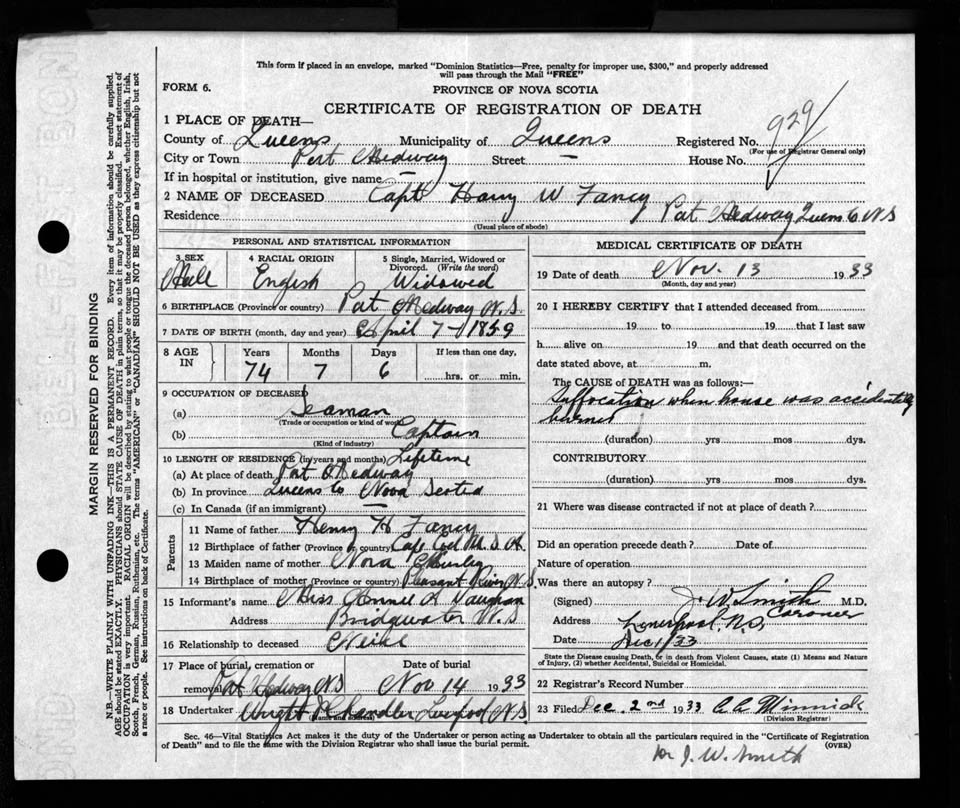 This form if placed in an envelope, marked "Dominion Statistics—Free, penalty for improper use, $300," and properly addressed
will pass through the Mail "FREE"
FORM 6.
PROVINCE OF NOVA SCOTIA
CERTIFICATE OF REGISTRATION OF DEATH
929
1 PLACE OF DEATH—
County of Queens Municipality of Queens Registered No.
(For use of Registrar General only)
City or Town Port Medway Street — House No.
If in hospital or institution, give name —
2 NAME OF DECEASED Capt Harry W Fancy
Residence Port Medway Queens Co N S
(Usual place of abode)
PERSONAL AND STATISTICAL INFORMATION
3 SEX 4 RACIAL ORIGIN 5 Single, Married, Widowed or Divorced. (Write the word)
Male English Widowed
6 BIRTHPLACE (Province or country) Port Medway N.S.
7 DATE OF BIRTH (month, day and year) April 7 - 1859
8 AGE IN Years Months Days If less than one day,
74 7 6 hrs. or min.
9 OCCUPATION OF DECEASED
(a) Seaman
(Trade or occupation or kind of work)
(b) Captain
(Kind of industry)
10 LENGTH OF RESIDENCE (in years and months) Lifetime
(a) At place of death Port Medway
(b) In province Queens Co Nova Scotia
(c) In Canada (if an immigrant) —
Parents
11 Name of father Henry H Fancy
12 Birthplace of father (Province or country) Cape Cod U.S.A.
13 Maiden name of mother Nora
14 Birthplace of mother (Province or country) Pleasant River N.S.
15 Informant's name Miss Annie L Vaughan
Address Bridgewater N.S
16 Relationship to deceased Niece
17 Place of burial, cremation or removal Date of burial
Port Medway NS Nov 14 1933
18 Undertaker Wright Chandler Liverpool N.S
(Name and address)
MEDICAL CERTIFICATE OF DEATH
19 Date of death Nov. 13 1933
(Month, day and year)
20 I HEREBY CERTIFY that I attended deceased from
19 to 19 that I last saw
h alive on 19 and that death occurred on the
date stated above, at m.
The CAUSE of DEATH was as follows:—
Suffocation when house was accidently
burned
(duration) yrs. mos. dys.
CONTRIBUTORY
(duration) yrs. mos. dys.
21 Where was disease contracted if not at place of death?
Did an operation precede death? Date of
Nature of operation
Was there an autopsy?
(Signed) J. W. Smith M.D.
Coroner
Address Liverpool, N.S.
Date Dec 1/33
State the Disease causing Death, or in death from Violent Causes, state (1) Means and Nature of Injury, (2) whether Accidental, Suicidal or Homicidal.
22 Registrar's Record Number
23 Filed Dec. 2nd 1933 Minnick
(Division Registrar)
Sec. 46—Vital Statistics Act makes it the duty of the Undertaker or person acting as Undertaker to obtain all the particulars required in the "Certificate of Registration
of Death" and to file the same with the Division Registrar who shall issue the burial permit. (OVER)
Dr J. W. Smith
MARGIN RESERVED FOR BINDING
N.B.—WRITE PLAINLY WITH UNFADING INK—THIS IS A PERMANENT RECORD. Every item of information should be carefully supplied.
AGE should be stated EXACTLY. PHYSICIANS should STATE CAUSE OF DEATH in plain terms, so that it may be properly classified. Exact statement of
OCCUPATION is very important. RACIAL ORIGIN will be described by stating to what people or tongue the deceased person belonged, whether English, Irish,
Scotch, French, German, Russian, Ruthenian, etc. The terms "AMERICAN" or "CANADIAN" SHOULD NOT BE USED as they express citizenship but not
a race or people. See instructions on back of Certificate.